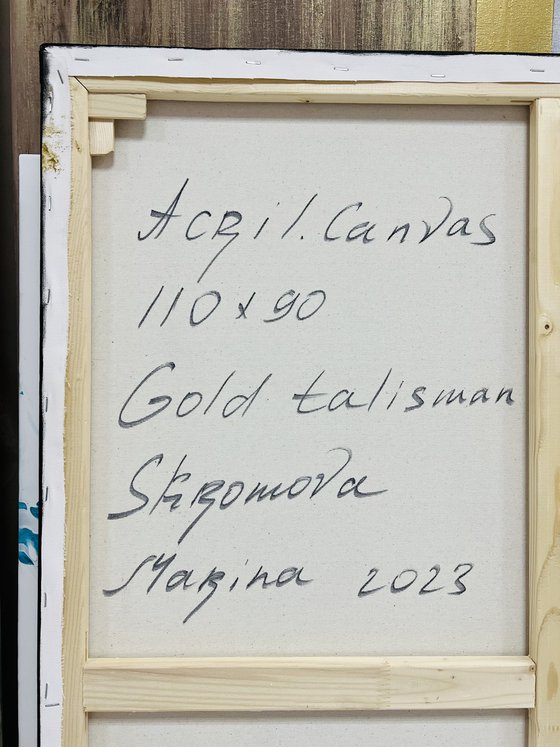 Acril. Canvas
110x90
Gold talisman
Skromova
Marina 2023